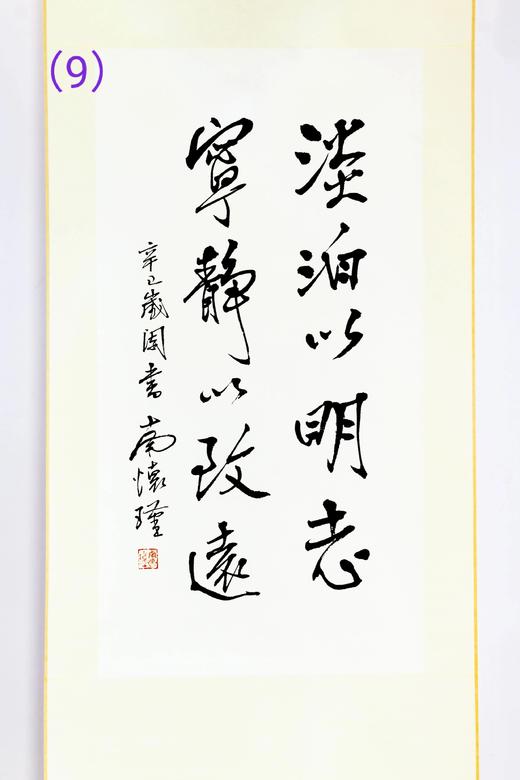 (9)
淡泊以明志
寧靜以致遠
辛巳歲閏書 南懷瑾